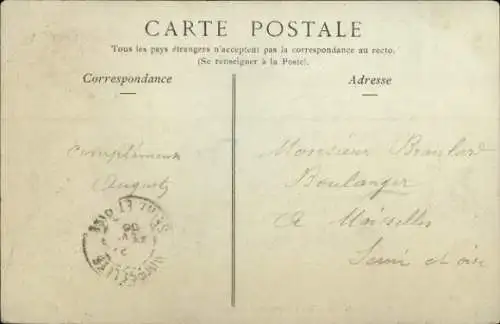 CARTE POSTALE
Tous les pays étrangers n'acceptent pas la correspondance au recto.
(Se renseigner à la Poste).
Correspondance
Adresse
Compliments
Auguste
Monsieur
Boulanger
à Moiselles
Seine et oise